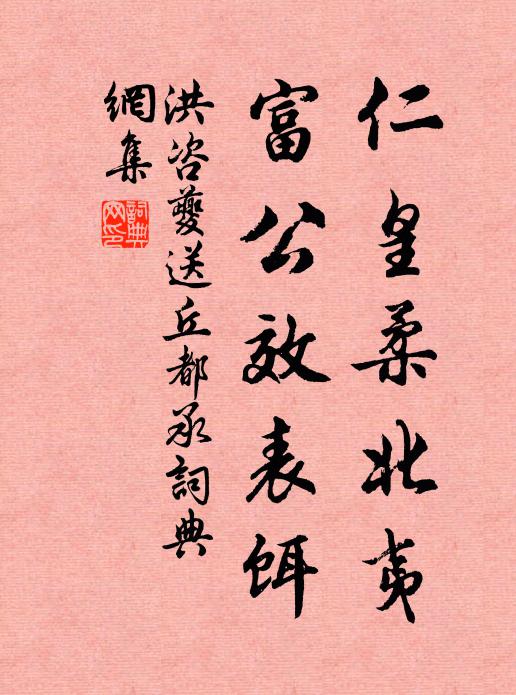 仁皇柔北夷
富公效表餌
洪咨夔送丘都承詞典
網集
詞典網印